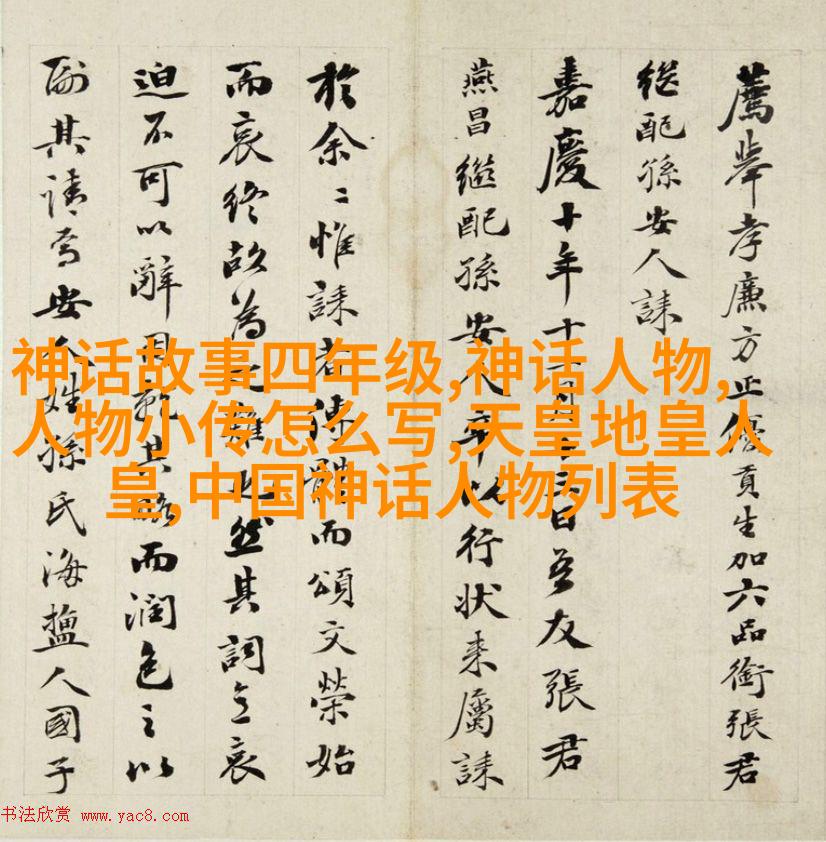 薦舉孝廉方正貢生加六品銜張君
继配孫安人誄
嘉慶十年十日吾友張君
燕昌継配孫安人卒以行狀来屬誄
於余〻惟誄者傳體而頌文榮始
而哀終故為之難也然其詞哀
迫不可以辭因其略而潤色之以
副其請焉安人姓孫氏海鹽人國子
神话故事四年级,神话人物,
人物小传怎么写,天皇地皇人
皇,中国神话人物列表
书法欣赏 www.yac8.com